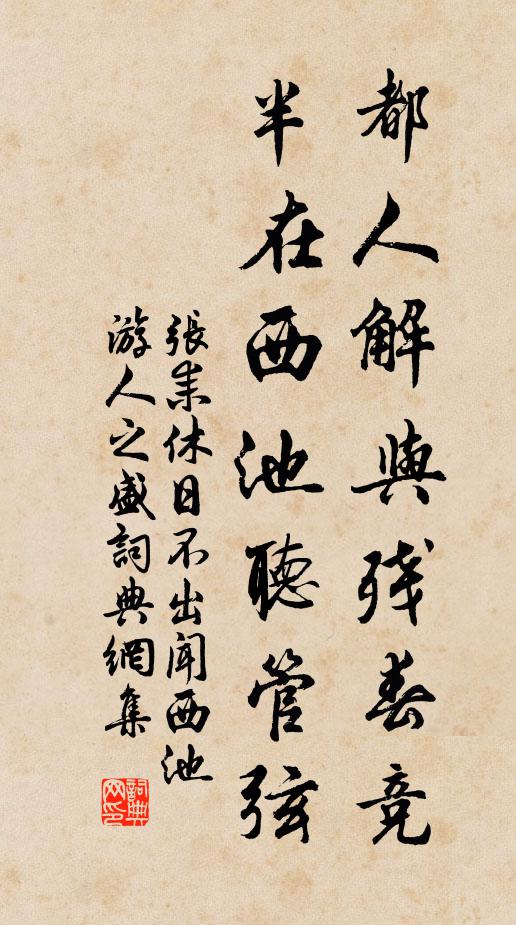 都人解與残春竞
半在西池聽管弦
張耒休日不出聞西池
游人之盛詞典網集
詞典网印